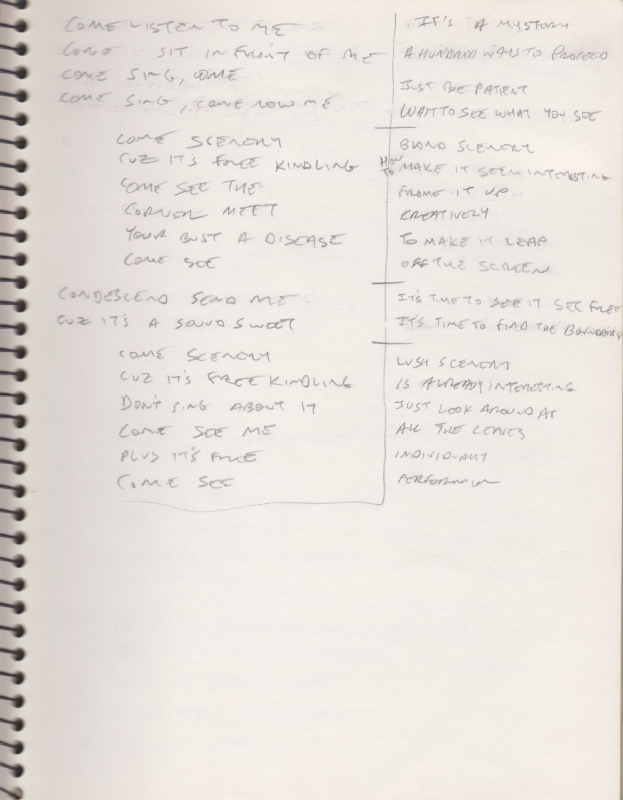 COME LISTEN TO ME
COME SIT IN FRONT OF ME
COME SING, COME
COME SING, COME NOW ME
COME SCENERY
CUZ IT'S FREE KINDLING
COME SEE THE
CORNER MEET
YOUR BUST A DISEASE
COME SEE
CONDESCEND SEND ME
CUZ IT'S A SOUND SWEET
COME SCENERY
CUZ IT'S FREE KINDLING
DON'T SING ABOUT IT
COME SEE ME
PLUS IT'S FREE
COME SEE
IT'S A MYSTERY
A HUNDRED WAYS TO PROCEED
JUST BE PATIENT
WAIT TO SEE WHAT YOU SEE
BLAND SCENERY
HOW TO MAKE IT SEEM INTERESTING
FRAME IT UP
CREATIVELY
TO MAKE IT LEAP
OFF THE SCREEN
IT'S TIME TO SEE IT SET FREE
IT'S TIME TO FIND THE BOUNDARY
LUSH SCENERY
IS ALREADY INTERESTING
JUST LOOK AROUND AT
ALL THE LEAVES
INDIVIDUALLY
PERFORMING